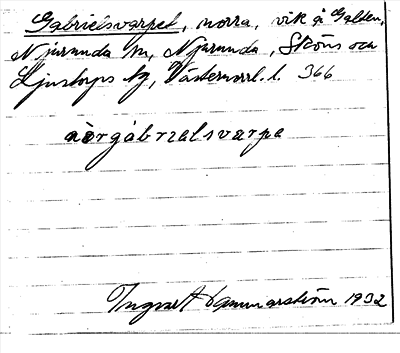 Gabrielsvarpet, norra, vik å Galden,
Njurunda sn, Njurunda, Sköns och
Ljustorps tg, Västernorrl. l. 366
nòrgábrzalsvarpa
Ingvar Hammarström 1932